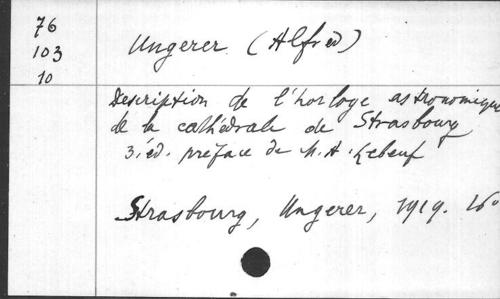 76
103
10
Ungerer (Alfred)
Description de l'horloge astronomique
de la cathédrale de Strasbourg
3.éd. préface de M. A. Lebeuf
Strasbourg, Ungerer, 1919. 16°